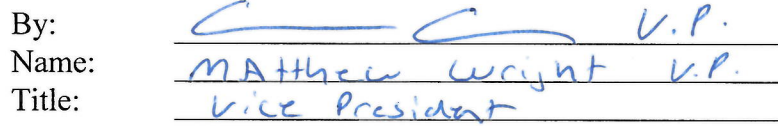 By: V.P.
Name: Matthew Wright V.P.
Title: Vice President